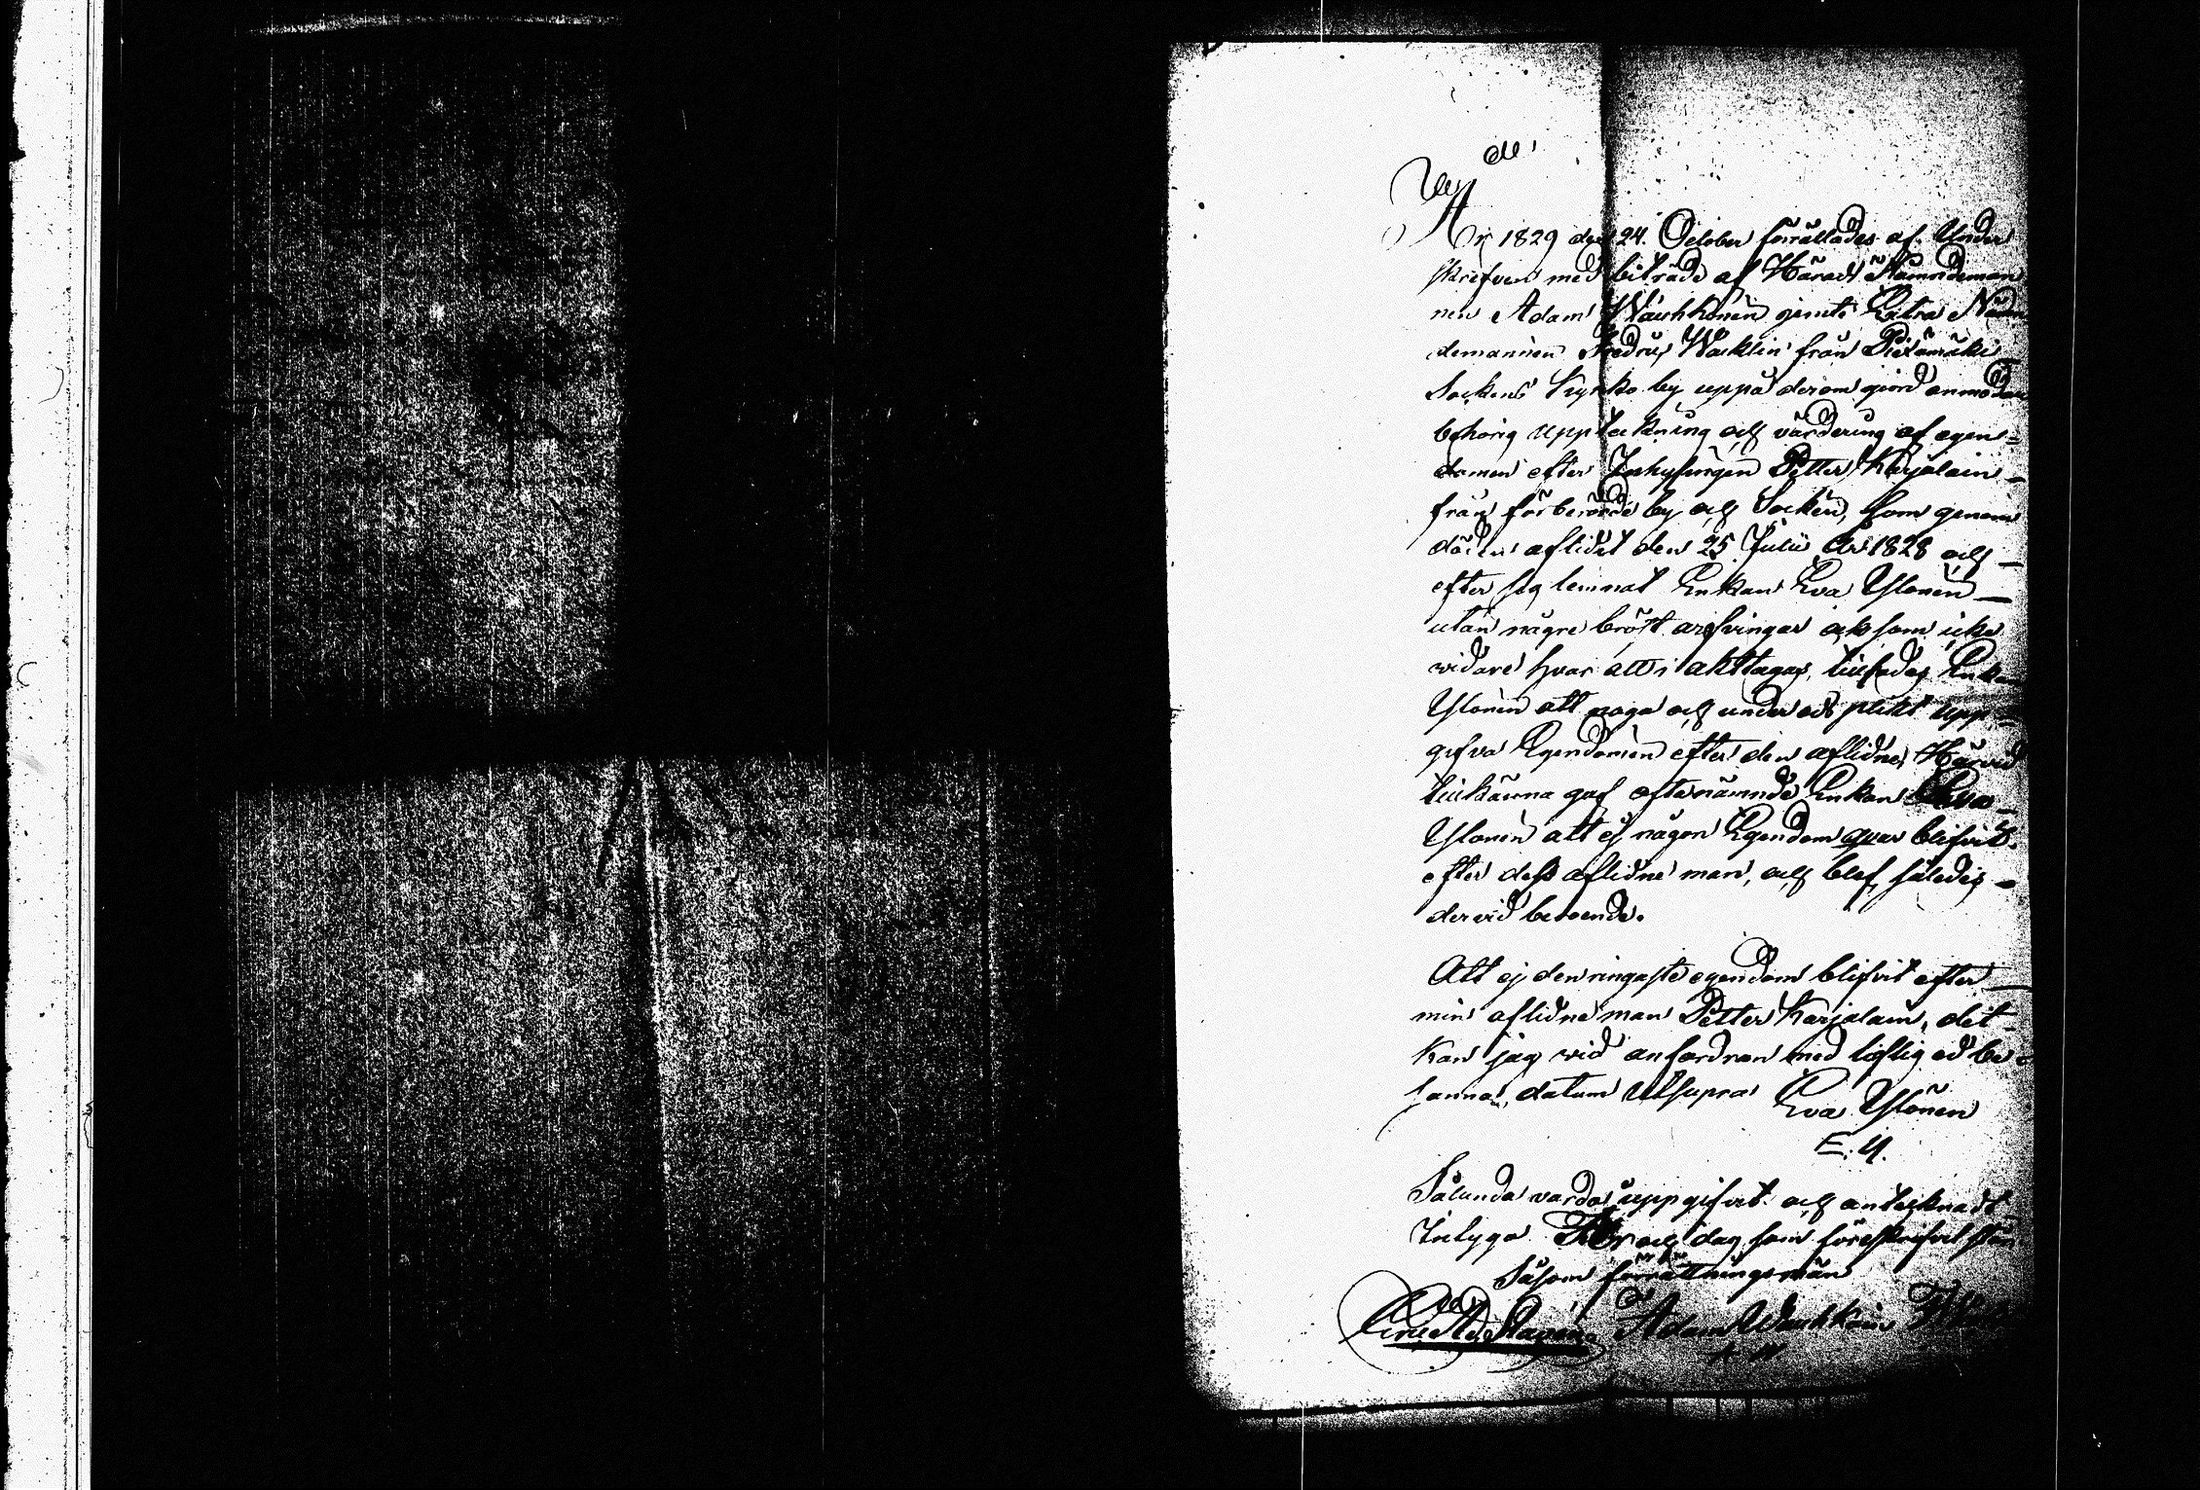 År 1829 den 24. October förrättades af Under
skrefven med biträde af Härads Nämndeman
nen Adam Wauhkonen jemte Extra Näm
demannen Fredric Wacklin från Pielämäki
Sockens Kyrko by uppå derom giord anmodan
behörig uppteckning och värdering af egen=
domen efter Inhysingen Petter Karjalain
från förberörde by och Socken, som genom
döden aflidit den 25 Julii år 1828 och
efter sig lemnat Enkan Eva Ylönen
utan någre bröst arfvingar och som icke
widare hvar att i akttagas, tillsades Enkan
Ylönen att noga och under ed plikt upp=
gifva Egendomen efter den aflidne, Härvid
tillkänna gaf ofternämnde Enkan Eva
Ylönen att ej någon Egendom qvar blifvit
efter dess aflidne man, och blef således
dervid beroende.
Att ej den ringaste egendom blifvit efter
min aflidne man Petter Karjalain, det
kan jag wid anfordran med liflig ed be=
sanna, datum utsupra Eva Ylönen
E. Y.
Sålunda vardt uppgifvit och antecknadt
Intyga År och dag som föreskrifvit står
Såsom förrättningsmän
Adam Wauhkoin